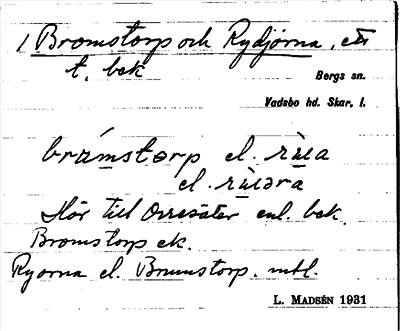 1 Bromstorp och Rydjorna, ett
t. bek
Bergs sn.
Vadsbo hd. Skar. l.
bramstorp el.
el.
Hör till Orresäter enl. bek.
Bromstorp ek.
Ryorna el. Brumstorp. mtl.
L. MADSÉN 1931